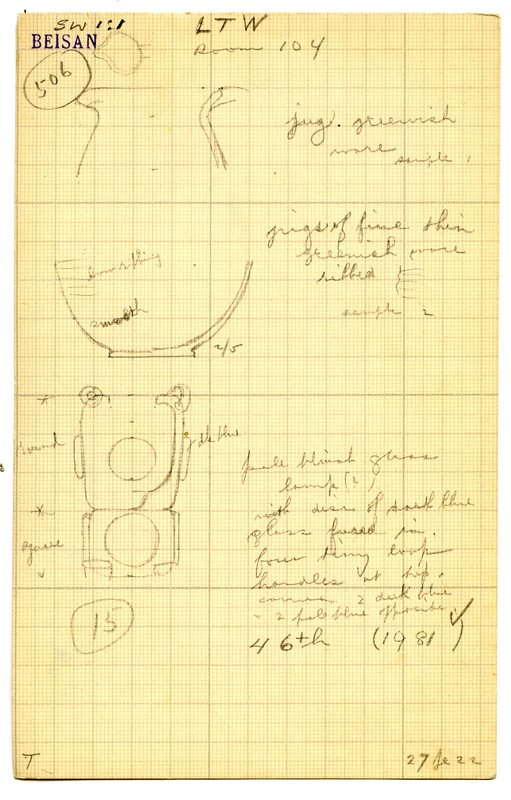 SW 1:1
LTW
BEISAN
Room 104
506
jug. greenish
ware
sample 1
of fine thin
greenish ware
ribbed
sample 2
smooth
2/5
dk blue
round
pale bluish glass
lamp (?)
with discs of dark blue
glass fused in.
four tiny loop
handles at top.
2 dark blue
2 pale blue opposite
square
15
46th (1981)
T
27 Je 22